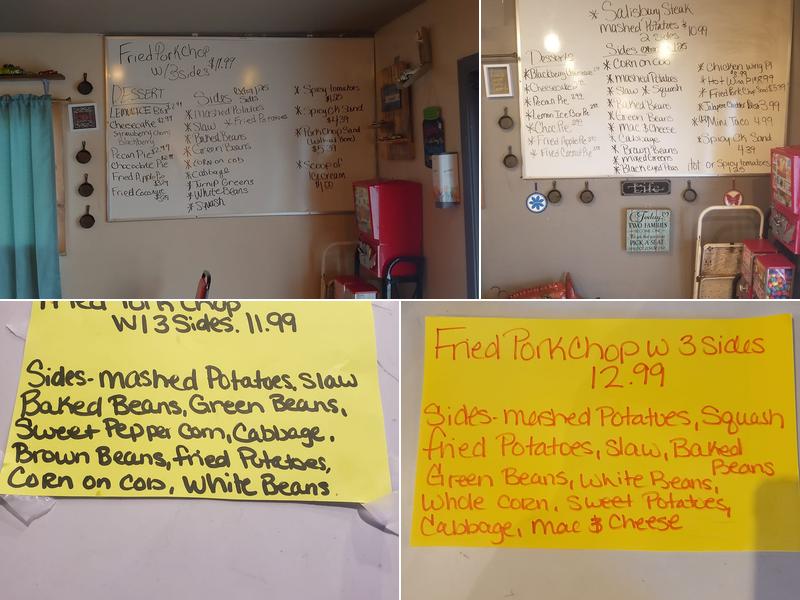 Fried Pork Chop
w/3 sides $11.99
DESSERT
Cheesecake
Strawberry
Pecan Pie
Chocolate Pie
Fried Apple Pie
Fried Coconut
Sides
* Mashed Potatoes
* Slaw * Fried Potatoes
* Baked Beans
* Green Beans
* Corn on Cob
* Cabbage
* Turnip Greens
* White Beans
* Squash
* Spicy tomatoes
* Spicy Ck Sand
$4.39
* Pork Chop Sand
(without bone)
* Scoop of
Ice cream
$1.00
* Salisbury Steak
mashed Potatoes $10.99
2 sides
Sides
Desserts
Cheesecake
* Pecan Pie
* Lemon Ice Box Pie
* Choc Pie
* Fried Apple Pie
* Fried Coconut Pie
* Corn on Cob
* Mashed Potatoes
* Slaw * Squash
* Baked Beans
* Green Beans
* Mac & Cheese
* Cabbage
* Brown Beans
* mixed Greens
* Black eyed Peas
* Chicken Wing Pl
* Hot Wing Pl
* Fried Pork Chop Sand
* Mini Taco 4.99
* Spicy Ck Sand
4.39
Hot or Spicy tomatoes
1.25
Life
Today's
TWO FAMILIES
PICK A SEAT
Fried Pork Chop
W/3 Sides. 11.99
Sides-mashed Potatoes, Slaw
Baked Beans, Green Beans,
Sweet Pepper corn, Cabbage,
Brown Beans, fried Potatoes,
Corn on Cob, White Beans
Fried Pork Chop w 3 Sides
12.99
Sides-mashed Potatoes, Squash
fried Potatoes, Slaw, Baked
Beans
Green Beans, White Beans,
Whole Corn, Sweet Potatoes,
Cabbage, Mac & Cheese